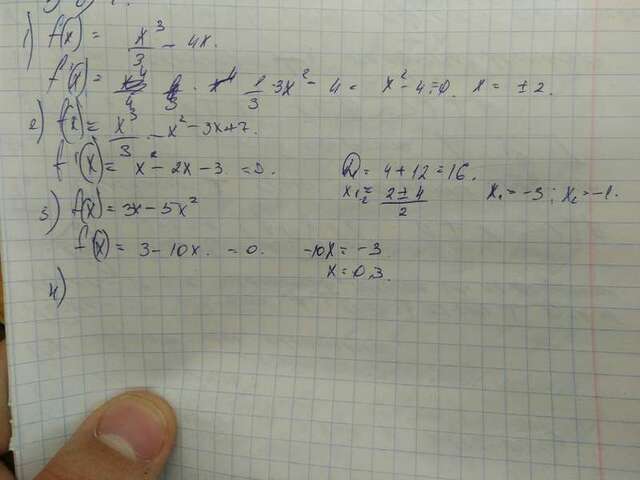 1) f(x) = x³/3 - 4x.
f'(x) = 1/3 · 3x² - 4 = x² - 4 = 0. x = ± 2.
2) f(x) = x³/3 - x² - 3x + 7.
f'(x) = x² - 2x - 3 = 0. D = 4 + 12 = 16.
x₁,₂ = (2 ± 4)/2 x₁ = -3; x₂ = -1.
3) f(x) = 3x - 5x²
f'(x) = 3 - 10x. = 0. -10x = -3
x = 0,3.
4)